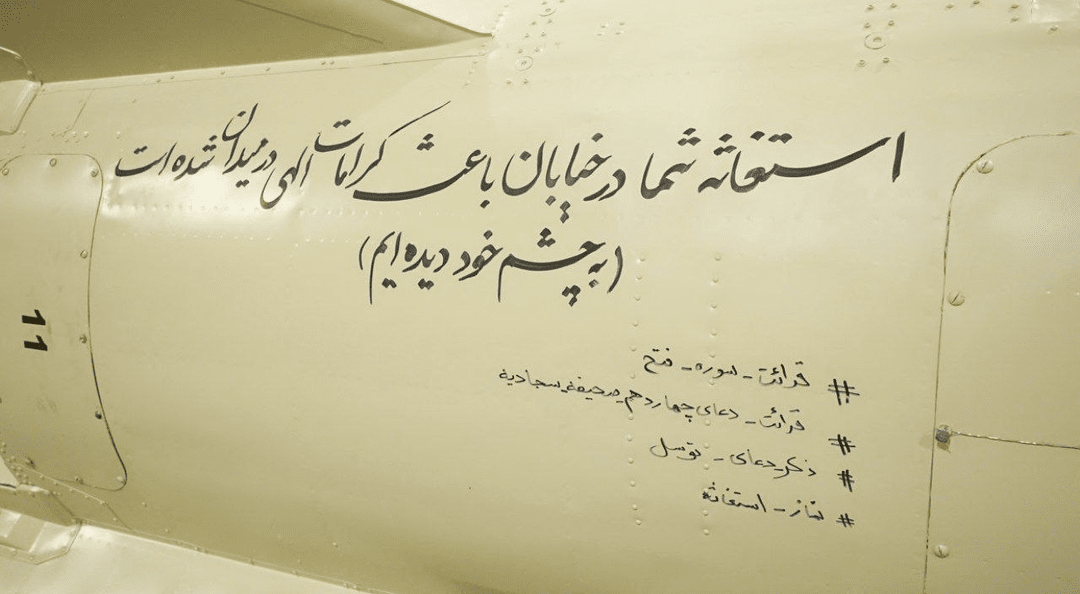 استغاثه شما در خیابان باعث کرامات الهی در میدان شده است
(به چشم خود دیده ایم)
# قرائت_سوره_فتح
# قرائت_دعای_چهاردهم_صحیفه_سجادیه
# ذکر_دعای_توسل
# نماز_استغاثه
11